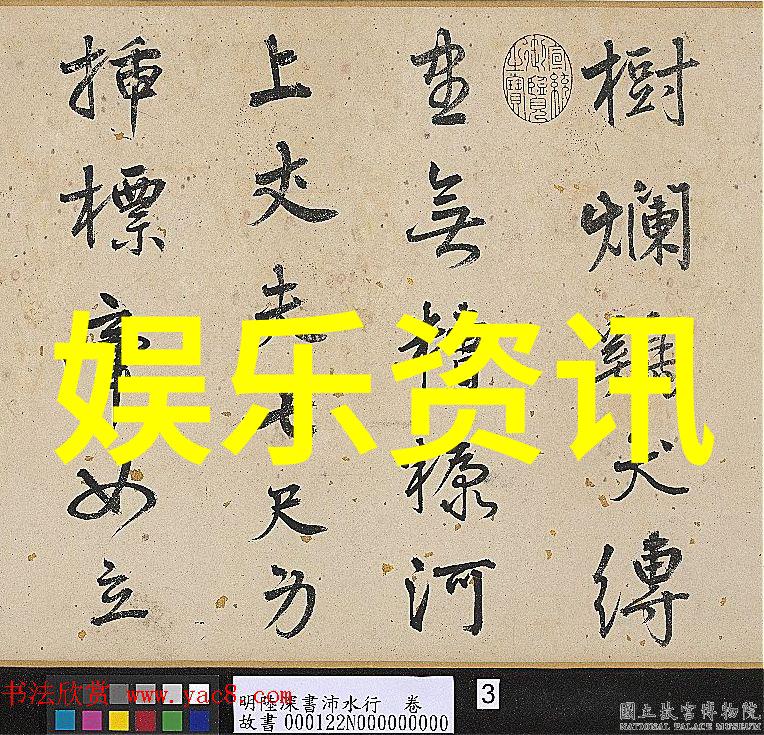 樹爛雞犬縛
無糟糠河
上丈夫七尺
插標女立
宣統御覽之寶
娱乐资讯
书法欣赏 www.yac8.com
明陸深書沛水行 卷
故書 000122N000000000
3
國立故宮博物院
NATIONAL PALACE MUSEUM